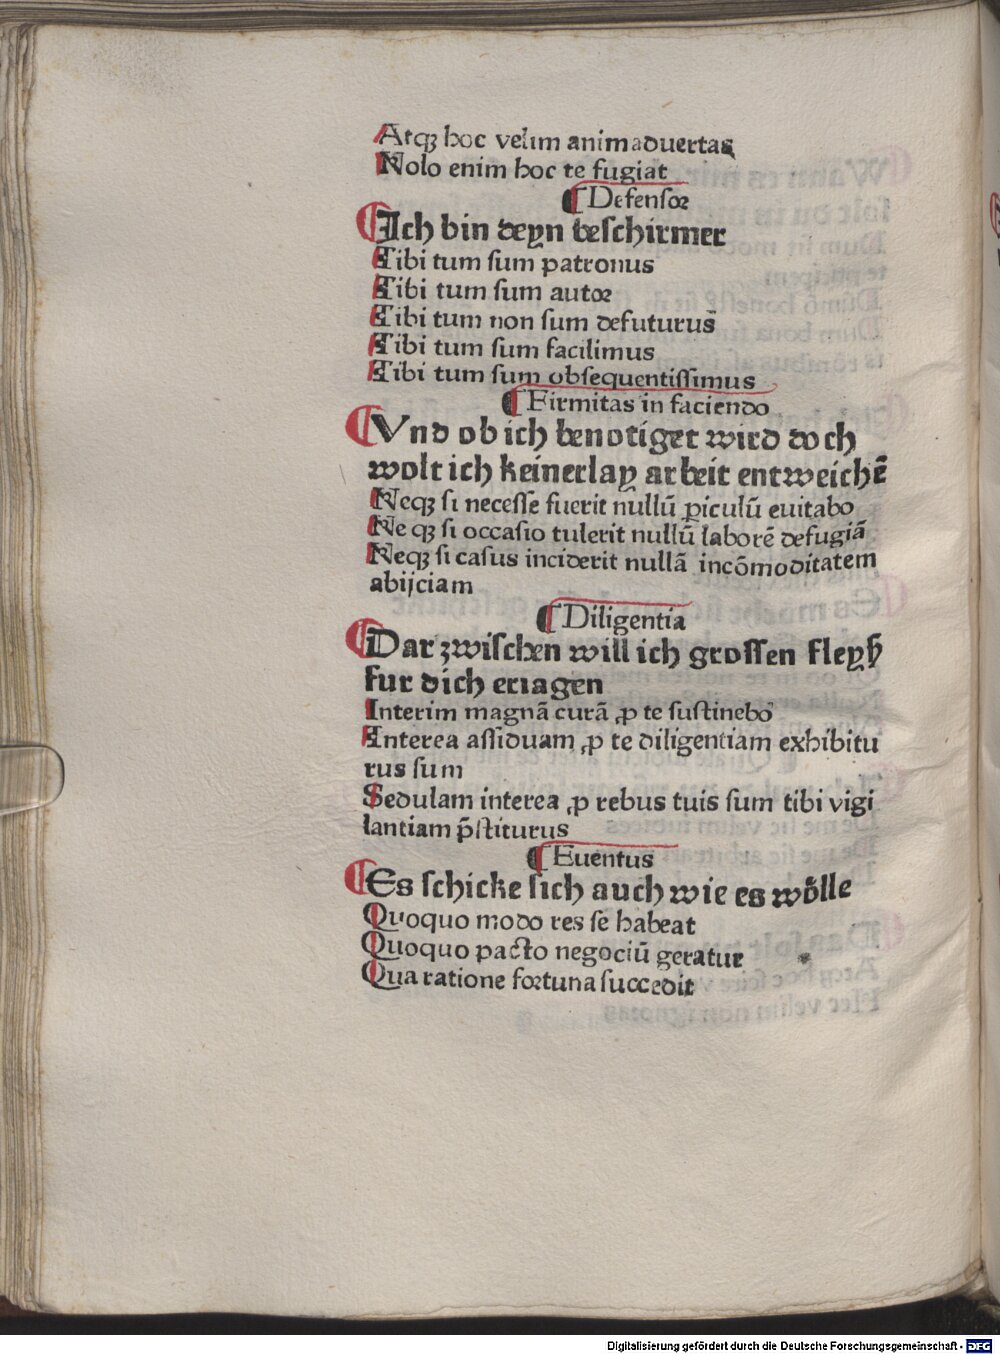 Atqꝫ hoc velim animaduertas
Nolo enim hoc te fugiat
¶ Defensoꝛ
¶ Ich bin deyn beschirmer
Tibi tum sum patronus
Tibi tum sum autoꝛ
Tibi tum non sum defuturus
Tibi tum sum facilimus
Tibi tum sum obsequentissimus
¶ Firmitas in faciendo
¶ Vnd ob ich benotiget wird doch
wolt ich keinerlay arbeit entweichē
Neqꝫ si necesse fuerit nullū ꝑiculū euitabo
Ne qꝫ si occasio tulerit nullū laborē defugiā
Neqꝫ si casus inciderit nullā incōmoditatem
abijciam
¶ Diligentia
¶ Dar zwischen will ich grossen fleyß
fur dich eriagen
Interim magnā curā ꝓ te sustinebo
Interea assiduam ꝓ te diligentiam exhibitu
rus sum
Sedulam interea ꝓ rebus tuis sum tibi vigi
lantiam p̄stiturus
¶ Euentus
¶ Es schicke sich auch wie es wölle
Quoquo modo res se habeat
Quoquo pacto negociū geratur
Qua ratione foꝛtuna succedit
Digitalisierung gefördert durch die Deutsche Forschungsgemeinschaft - DFG